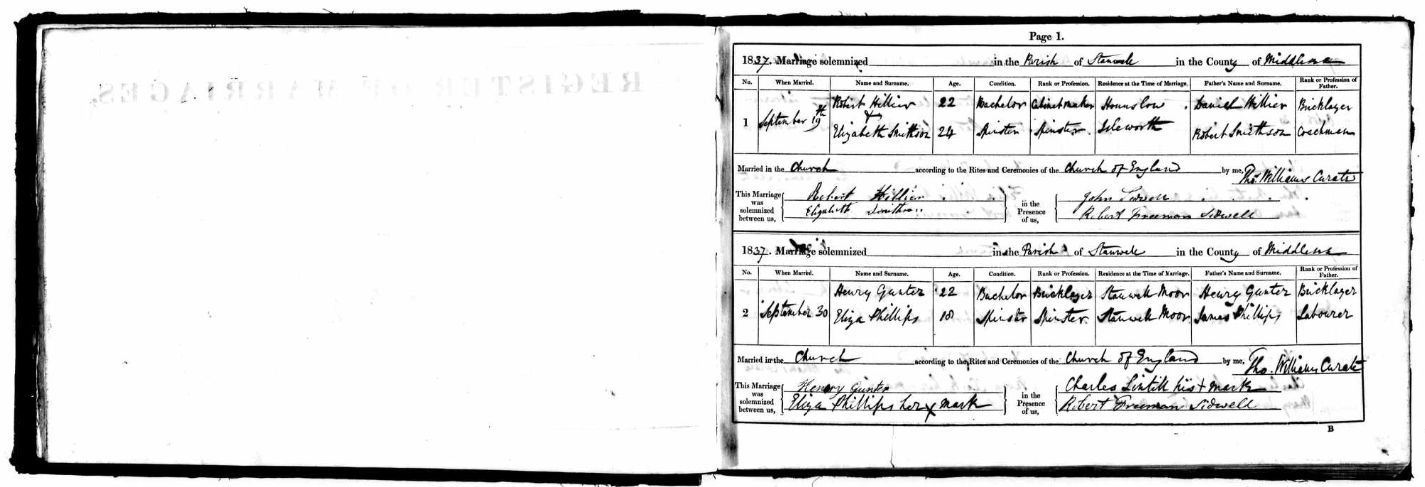 REGISTER OF MARRIAGES,
Page 1.
1837. Marriage solemnized in the Parish of Stanwell in the County of Middlesex
No. When Married. Name and Surname. Age. Condition. Rank or Profession. Residence at the Time of Marriage. Father's Name and Surname. Rank or Profession of Father.
1 September 19th Robert Hillier 22 Bachelor Cabinetmaker Hounslow Daniel Hillier Bricklayer
& Elizabeth Smithson 24 Spinster Spinster Isleworth Robert Smithson Coachman
Married in the Church according to the Rites and Ceremonies of the Church of England by me, Thos. Williams Curate
This Marriage was solemnized between us, Robert Hillier in the Presence of us, John
Elizabeth Smithson Robert Freeman Sidwell
1837. Marriage solemnized in the Parish of Stanwell in the County of Middlesex
No. When Married. Name and Surname. Age. Condition. Rank or Profession. Residence at the Time of Marriage. Father's Name and Surname. Rank or Profession of Father.
2 September 30 Henry Gunter 22 Bachelor Bricklayer Stanwell Moor Henry Gunter Bricklayer
Eliza Phillips 18 Spinster Spinster Stanwell Moor James Phillips Labourer
Married in the Church according to the Rites and Ceremonies of the Church of England by me, Tho. Williams Curate
This Marriage was solemnized between us, Henry Gunter in the Presence of us, Charles Lintill his + mark
Eliza Phillips her x mark Robert Freeman Sidwell
B